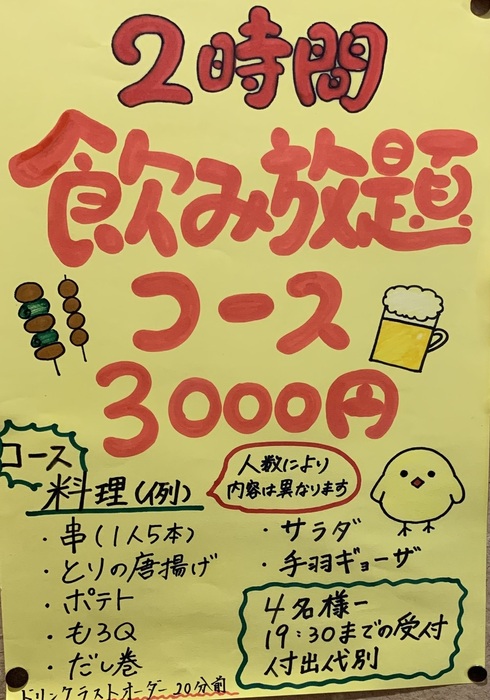 2時間
飲み放題
コース
3000円
コース
料理(例)
人数により
内容は異なります
・串(1人5本)
・とりの唐揚げ
・ポテト
・もろQ
・だし巻
・サラダ
・手羽ギョーザ
4名様ー
19:30までの受付
付出代別
ドリンクラストオーダー20分前